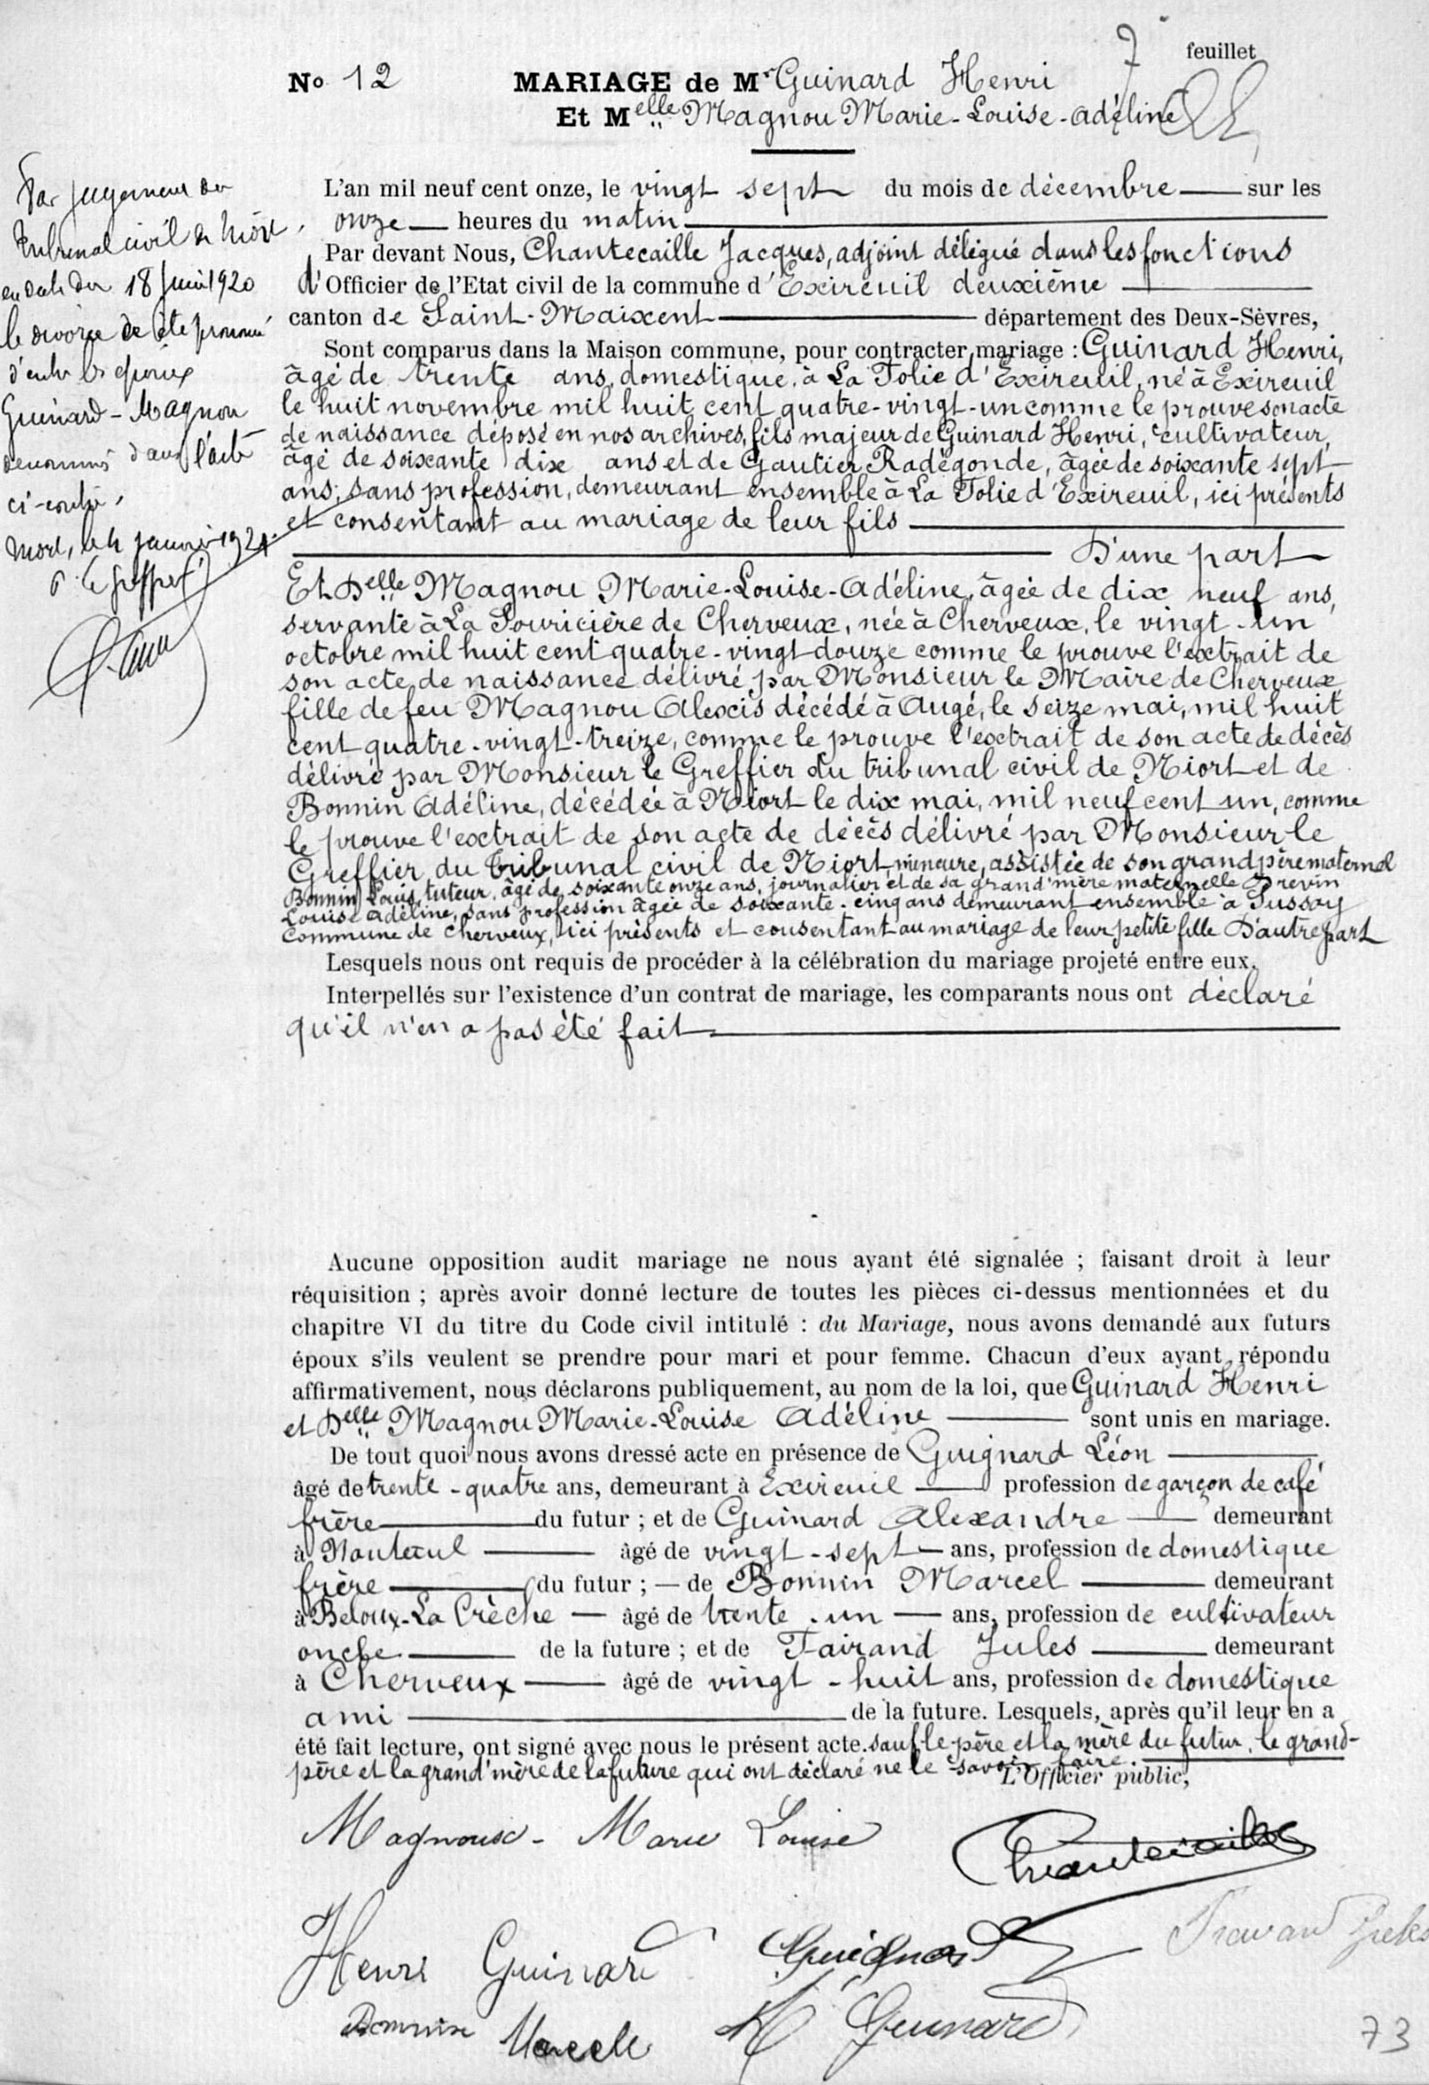 7 feuillet
No 12 MARIAGE de Mr Guinard Henri
Et Melle Magnou Marie-Louise-Adéline
Par jugement du
tribunal civil de Niort
en date du 18 Juin 1920
le divorce a été prononcé
d'entre les époux
Guinard-Magnou
dénommés dans l'acte
ci-contre,
Niort, le 4 janvier 1921.
P. le greffier
L'an mil neuf cent onze, le vingt sept du mois de décembre sur les
onze heures du matin
Par devant Nous, Chantecaille Jacques, adjoint délégué dans les fonctions
d'Officier de l'Etat civil de la commune d'Exireuil deuxième
canton de Saint-Maixent département des Deux-Sèvres,
Sont comparus dans la Maison commune, pour contracter mariage : Guinard Henri,
âgé de trente ans, domestique, à La Folie d'Exireuil, né à Exireuil
le huit novembre mil huit cent quatre-vingt-un comme le prouve son acte
de naissance déposé en nos archives, fils majeur de Guinard Henri, cultivateur,
âgé de soixante dix ans et de Gautier Radégonde, âgée de soixante sept
ans, sans profession, demeurant ensemble à La Folie d'Exireuil, ici présents
et consentant au mariage de leur fils
D'une part
Et Delle Magnou Marie-Louise-Adéline, âgée de dix neuf ans,
servante à La Souricière de Cherveux, née à Cherveux, le vingt-un
octobre mil huit cent quatre-vingt douze comme le prouve l'extrait de
son acte de naissance délivré par Monsieur le Maire de Cherveux
fille de feu Magnou Alexis décédé à Augé, le seize mai, mil huit
cent quatre-vingt-treize, comme le prouve l'extrait de son acte de décès
délivré par Monsieur le Greffier du tribunal civil de Niort et de
Bonnin Adéline, décédée à Niort le dix mai, mil neuf cent un, comme
le prouve l'extrait de son acte de décès délivré par Monsieur le
Greffier du tribunal civil de Niort, mineure, assistée de son grand père maternel
Bonnin Louis, tuteur, âgé de soixante onze ans, journalier et de sa grand'mère maternelle Previn
Louise Adéline, sans profession âgée de soixante-cinq ans demeurant ensemble à Pussay
Commune de Cherveux, ici présents et consentant au mariage de leur petite fille D'autre part
Lesquels nous ont requis de procéder à la célébration du mariage projeté entre eux.
Interpellés sur l'existence d'un contrat de mariage, les comparants nous ont déclaré
qu'il n'en a pas été fait
Aucune opposition audit mariage ne nous ayant été signalée ; faisant droit à leur
réquisition ; après avoir donné lecture de toutes les pièces ci-dessus mentionnées et du
chapitre VI du titre du Code civil intitulé : du Mariage, nous avons demandé aux futurs
époux s'ils veulent se prendre pour mari et pour femme. Chacun d'eux ayant répondu
affirmativement, nous déclarons publiquement, au nom de la loi, que Guinard Henri
et Delle Magnou Marie-Louise Adéline sont unis en mariage.
De tout quoi nous avons dressé acte en présence de Guignard Léon
âgé de trente-quatre ans, demeurant à Exireuil profession de garçon de café
frère du futur ; et de Guinard Alexandre demeurant
à Nanteuil âgé de vingt-sept ans, profession de domestique
frère du futur ; — de Bonnin Marcel demeurant
à Beloux-La Crèche âgé de trente-un ans, profession de cultivateur
oncle de la future ; et de Fairand Jules demeurant
à Cherveux âgé de vingt-huit ans, profession de domestique
ami de la future. Lesquels, après qu'il leur en a
été fait lecture, ont signé avec nous le présent acte. sauf le père et la mère du futur, le grand-
père et la grand'mère de la future qui ont déclaré ne le savoir faire.
L'Officier public,
Magnoux- Marie Louise
Chantecaille
Henri Guinard Guignard
Bonnin Marcel A Guinard
73